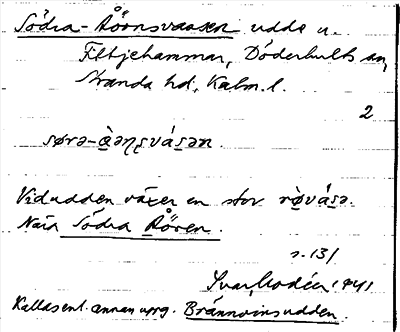 Södra-Röörnsvaasen udde u.
Fittjehammar, Döderhults sn,
Stranda hd, Kalm. l.
2
Vid udden växer en stor
Nära Södra Röören.
s. 131
Ivar Modéer 1941
Kallas enl. annan uppg. Brännvinsudden.